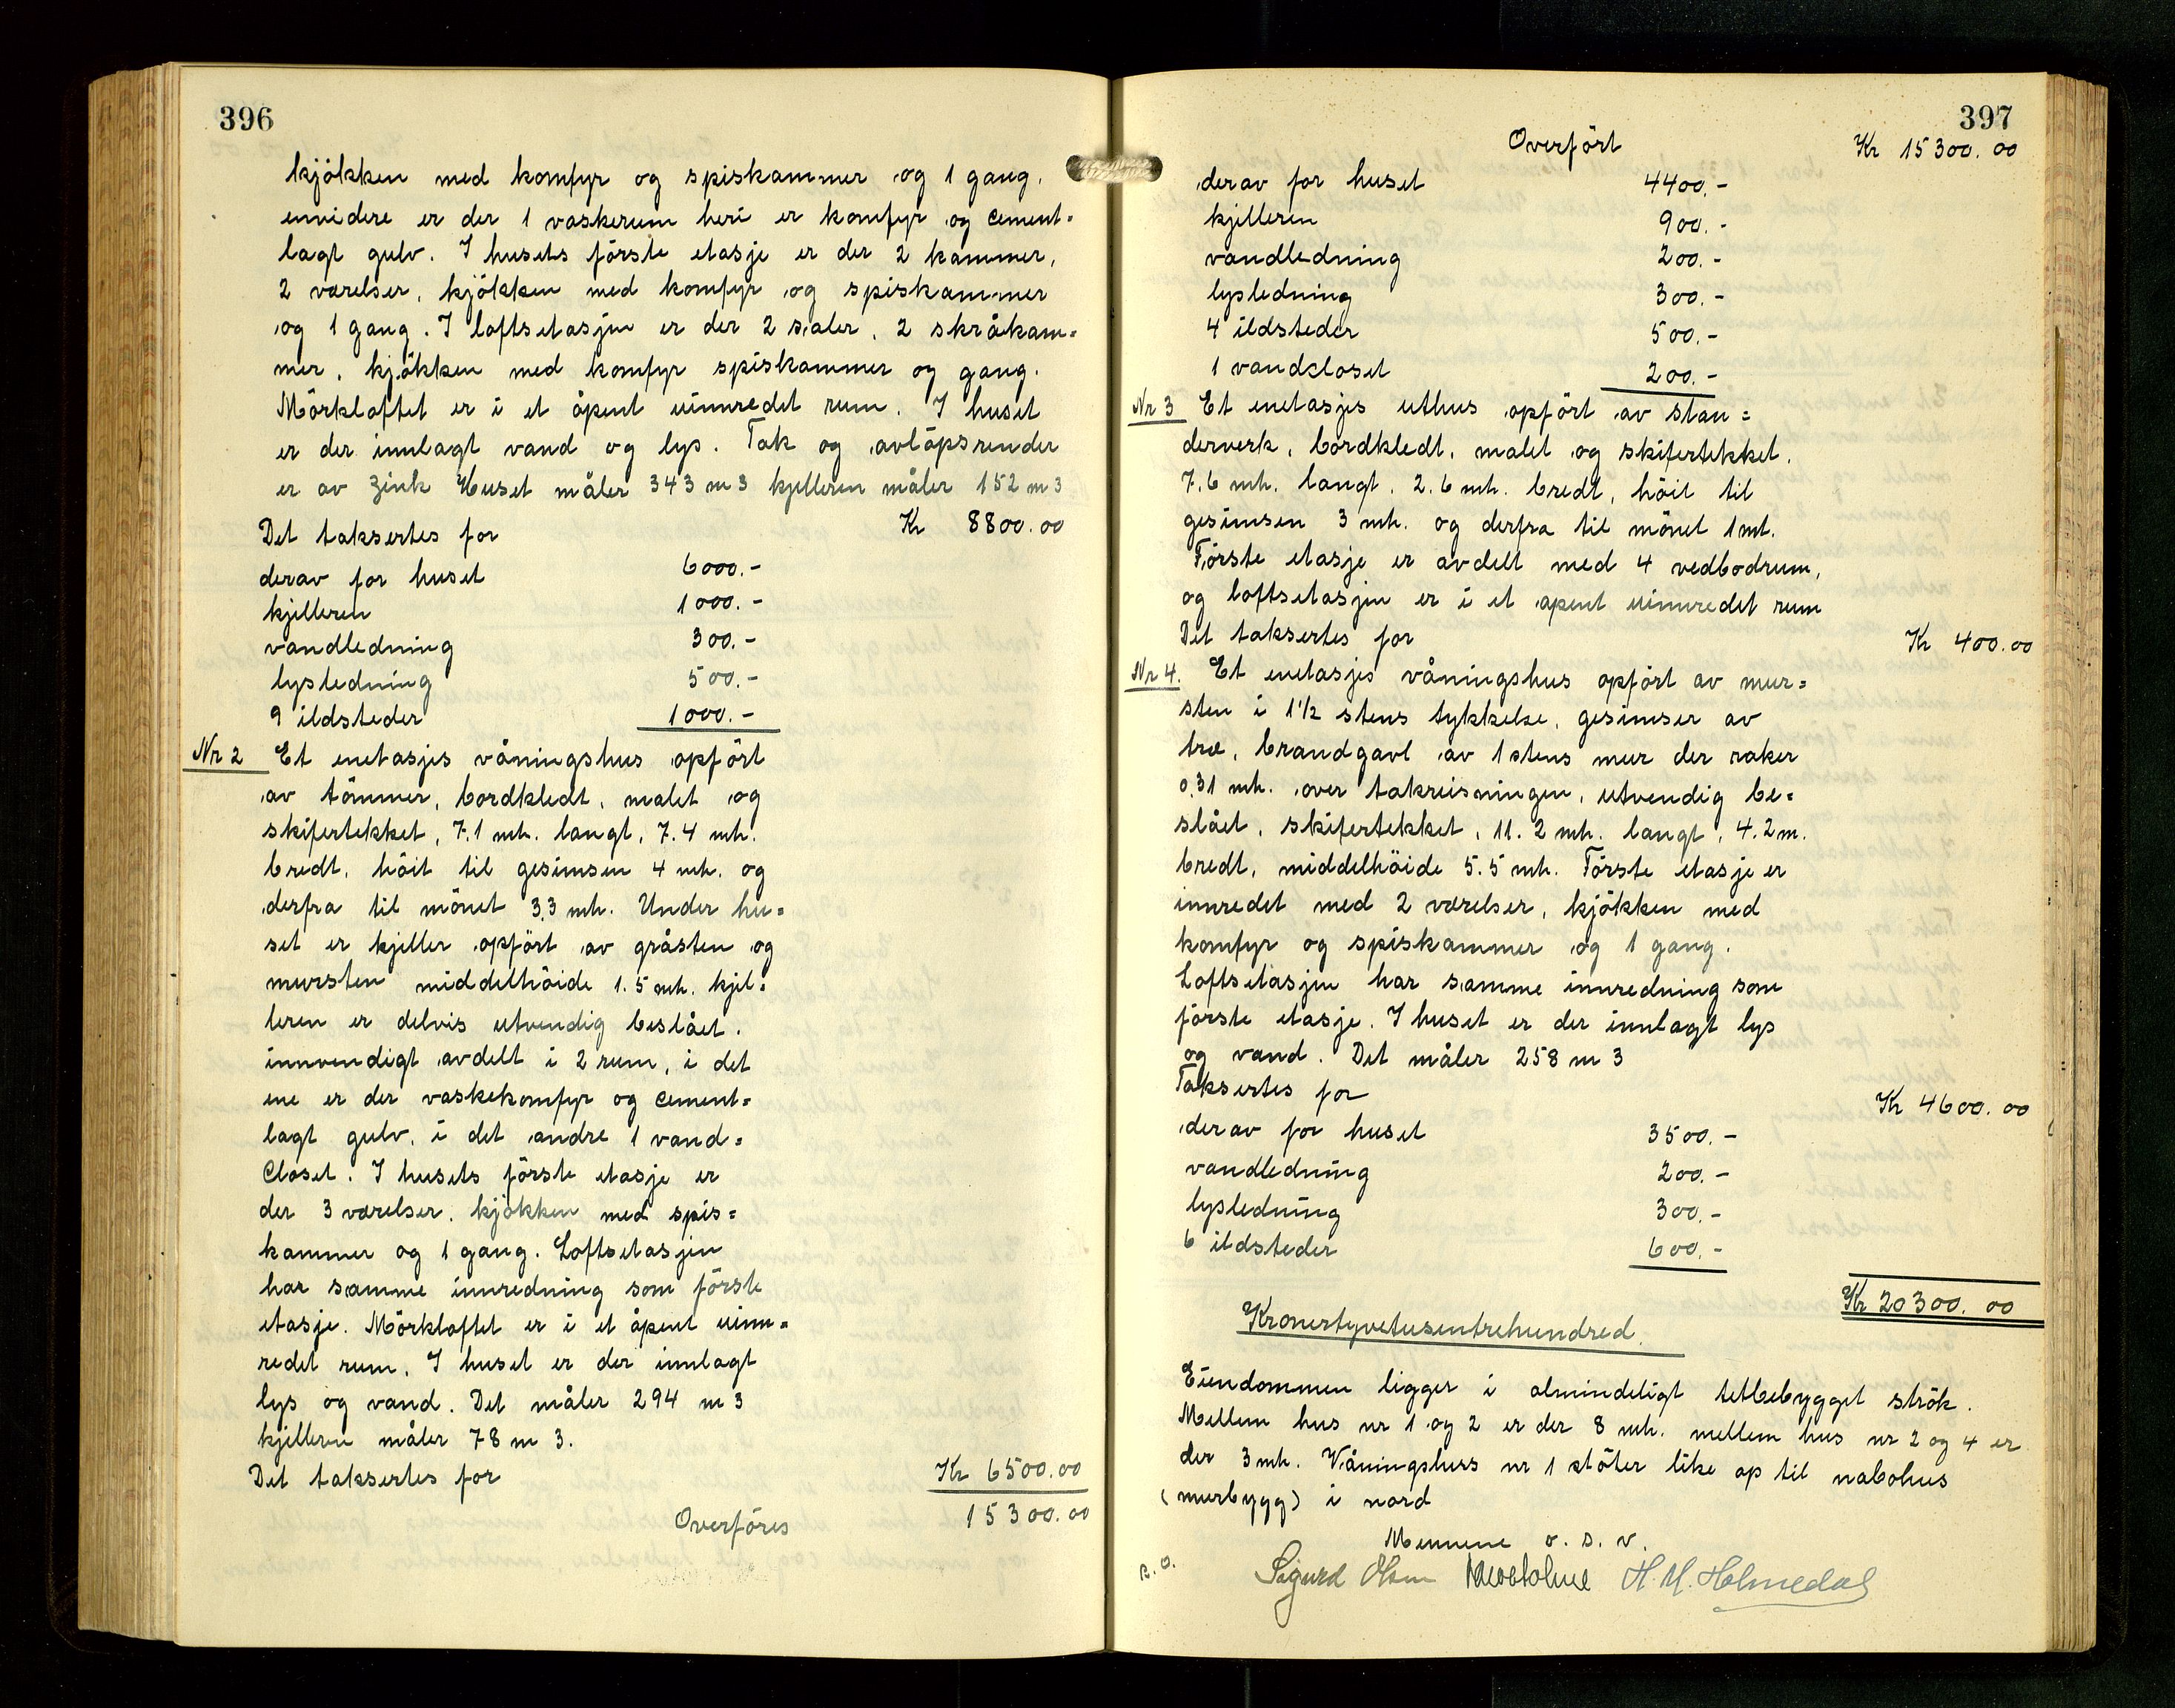 396
kjökken med komfyr og spiskammer og 1 gang.
envidere er der 1 vaskerum heri er komfyr og cement=
lagt gulv. I husets förste etasje er der 2 kammer,
2 værelser, kjökken med komfyr og spiskammer
og 1 gang. I loftsetasjen er der 2 saler, 2 skråkam=
mer, kjökken med komfyr spiskammer og gang.
Mörkloftet er i et åpent uinnredet rum. I huset
er der innlagt vand og lys. Tak og avlöpsrender
er av zink Huset måler 343 m3 kjelleren måler 152 m3
Det taksertes for Kr 8800.00
derav for huset 6000.-
kjelleren 1000.-
vandledning 300.-
lysledning 500.-
9 ildsteder 1000.-
Nr 2 Et enetasjes våningshus opfört
av tömmer, bordkledt, malet og
skifertekket, 7.1 mtr. langt, 7.4 mtr.
bredt, höit til gesimsen 4 mtr. og
derfra til mönet 3,3 mtr. Under hu=
set er kjeller opfört av gråsten og
mursten middelhöide 1.5 mtr. kjel=
leren er delvis utvendig beslået.
innvendigt avdelt i 2 rum, i det
ene er der vaskekomfyr og cement=
lagt gulv, i det andre 1 vand=
closet. I husets förste etasje er
der 3 værelser, kjökken med spis=
kammer og 1 gang. Loftsetasjen
har samme innredning som förste
etasje. Mörkloftet er i et åpent uinn=
redet rum. I huset er der innlagt
lys og vand. Det måler 294 m3
kjelleren måler 78 m3.
Det taksertes for Kr 6500.00
Overföres 15300.00
397
Overfört Kr 15300.00
derav for huset 4400.-
kjelleren 900.-
vandledning 200.-
lysledning 300.-
4 ildsteder 500.-
1 vandcloset 200.-
Nr 3 Et enetasjes uthus opfört av stan=
derverk, bordkledt, malet og skifertekket.
7.6 mtr. langt, 2.6 mtr. bredt, höit til
gesimsen 3 mtr. og derfra til mönet 1 mt.
Förste etasje er avdelt med 4 vedbodrum,
og loftsetasjen er i et åpent uinnredet rum
Det taksertes for Kr 400.00
Nr 4. Et enetasjes våningshus opfört av mur=
sten i 1½ stens tykkelse, gesimser av
træ, brandgavl av 1 stens mur der raker
0,31 mtr. over takreisningen, utvendig be=
slået, skifertekket, 11.2 mtr. langt, 4.2 m.
bredt, middelhöide 5.5 mtr. Förste etasje er
innredet med 2 værelser, kjökken med
komfyr og spiskammer og 1 gang.
Loftsetasjen har samme innredning som
förste etasje. I huset er der innlagt lys
og vand. Det måler 258 m3
Taksertes for Kr 4600.00
derav for huset 3500.-
vandledning 200.-
lysledning 300.-
6 ildsteder 600.-
Kr 20300.00
Kronertyvetusentrehundred.
Eiendommen ligger i almindeligt tetbebygget strök.
Mellem hus nr 1 og 2 er der 8 mtr. mellem hus nr 2 og 4 er
der 3 mtr. Våningshus nr 1 stöter like op til nabohus
(murbygg) i nord
Mennene o. s. v.
R. O. Sigurd Olsen H. M. Holmedal